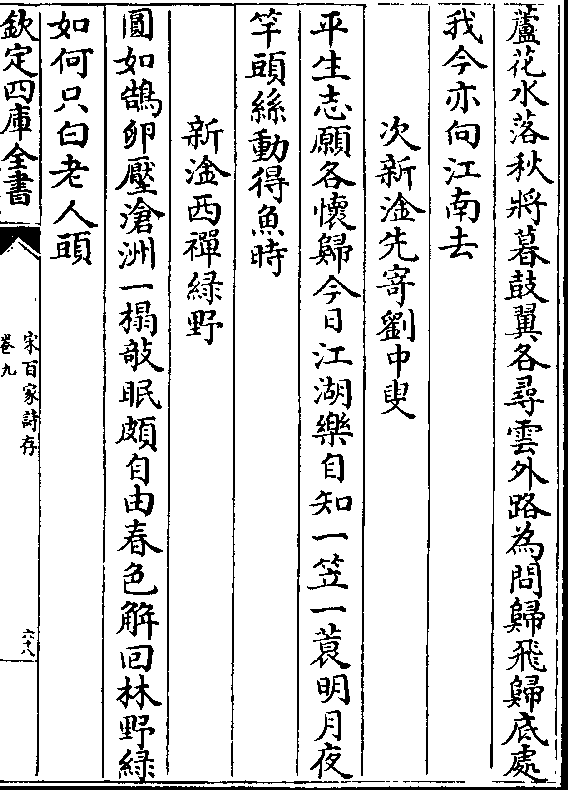 蘆花水落秋將暮鼓翼各尋雲外路為問歸飛歸底處
我今亦向江南去
次新淦先寄劉中叟
平生志願各懷歸今日江湖樂自知一笠一蓑明月夜
竿頭絲動得魚時
新淦西禪綠野
圓如鵠卵壓滄洲一榻敧眠頗自由春色解回林野綠
如何只白老人頭
欽定四庫全書
宋百家詩存
卷九
六十八